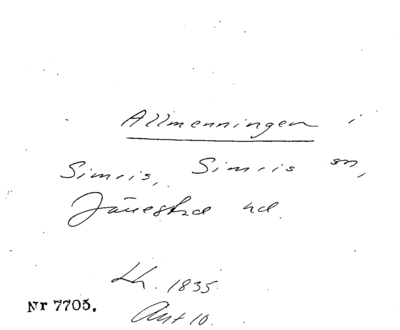 Allmenningen i
Simris, Simris sn,
Järrestad hd.
Lh. 1835.
Akt 10.
Nr 7705.